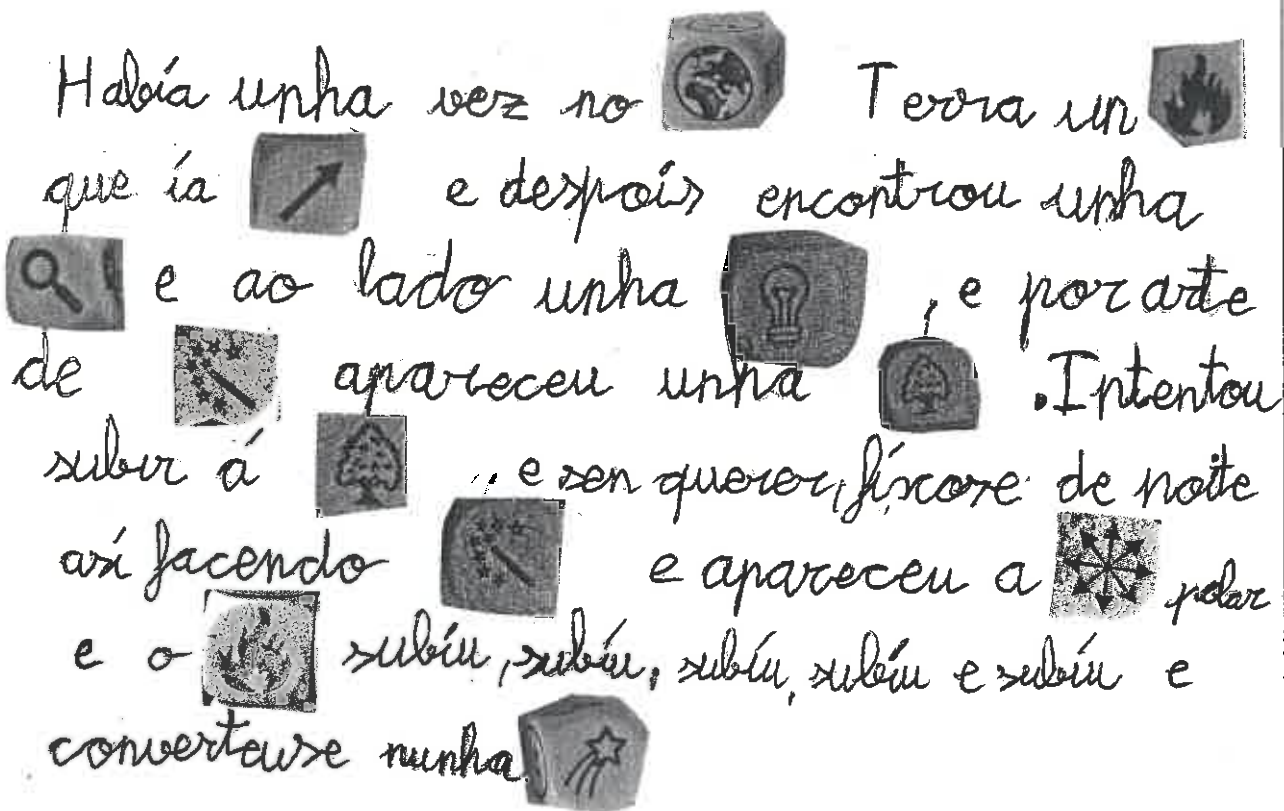 Había unha vez no Terra un
que ía e despois encontrou unha
e ao lado unha , e por arte
de apareceu unha . Intentou
subir á , e sen querer, fíxose de noite
así facendo e apareceu a polar
e o subíu, subíu, subíu, subíu e subíu e
converteuse nunha